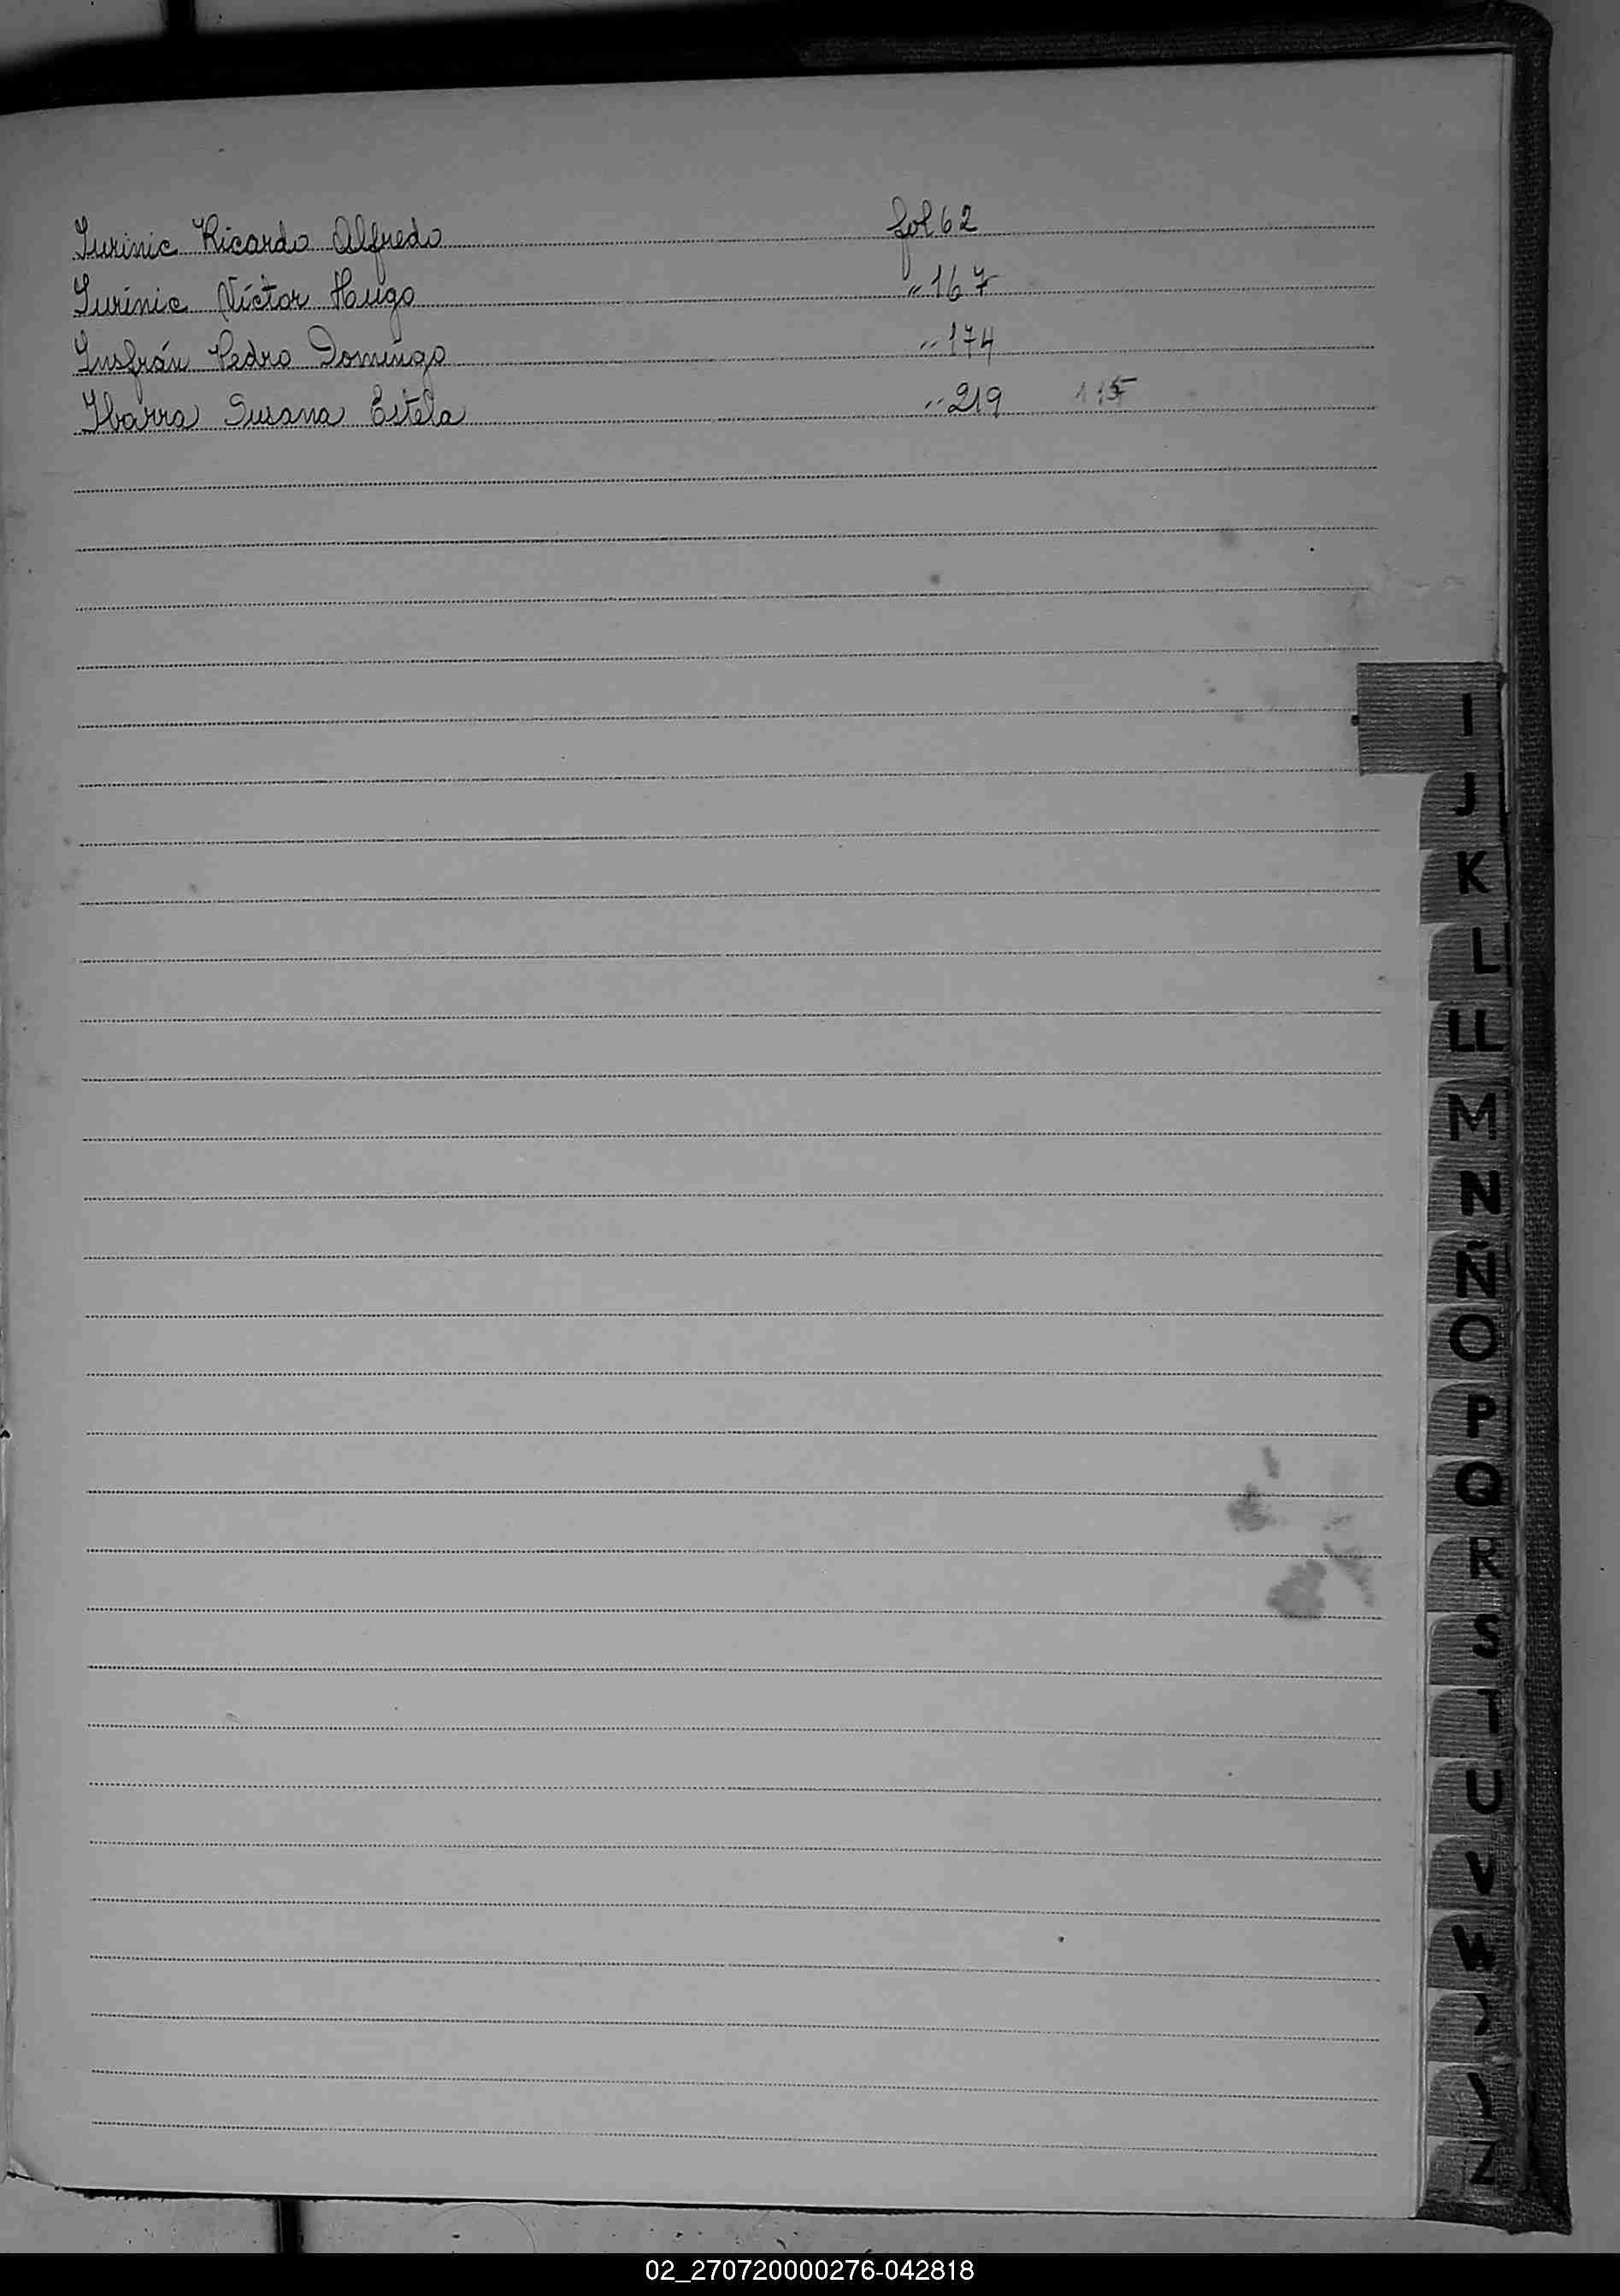 Iurinic Ricardo Alfredo fol 62
Iurinic Víctor Hugo " 167
Insfrán Pedro Domingo " 174
Ibarra Susana Estela " 219
I
J
K
L
LL
M
N
Ñ
O
P
Q
R
S
T
U
V
W
Z
02_270720000276-042818